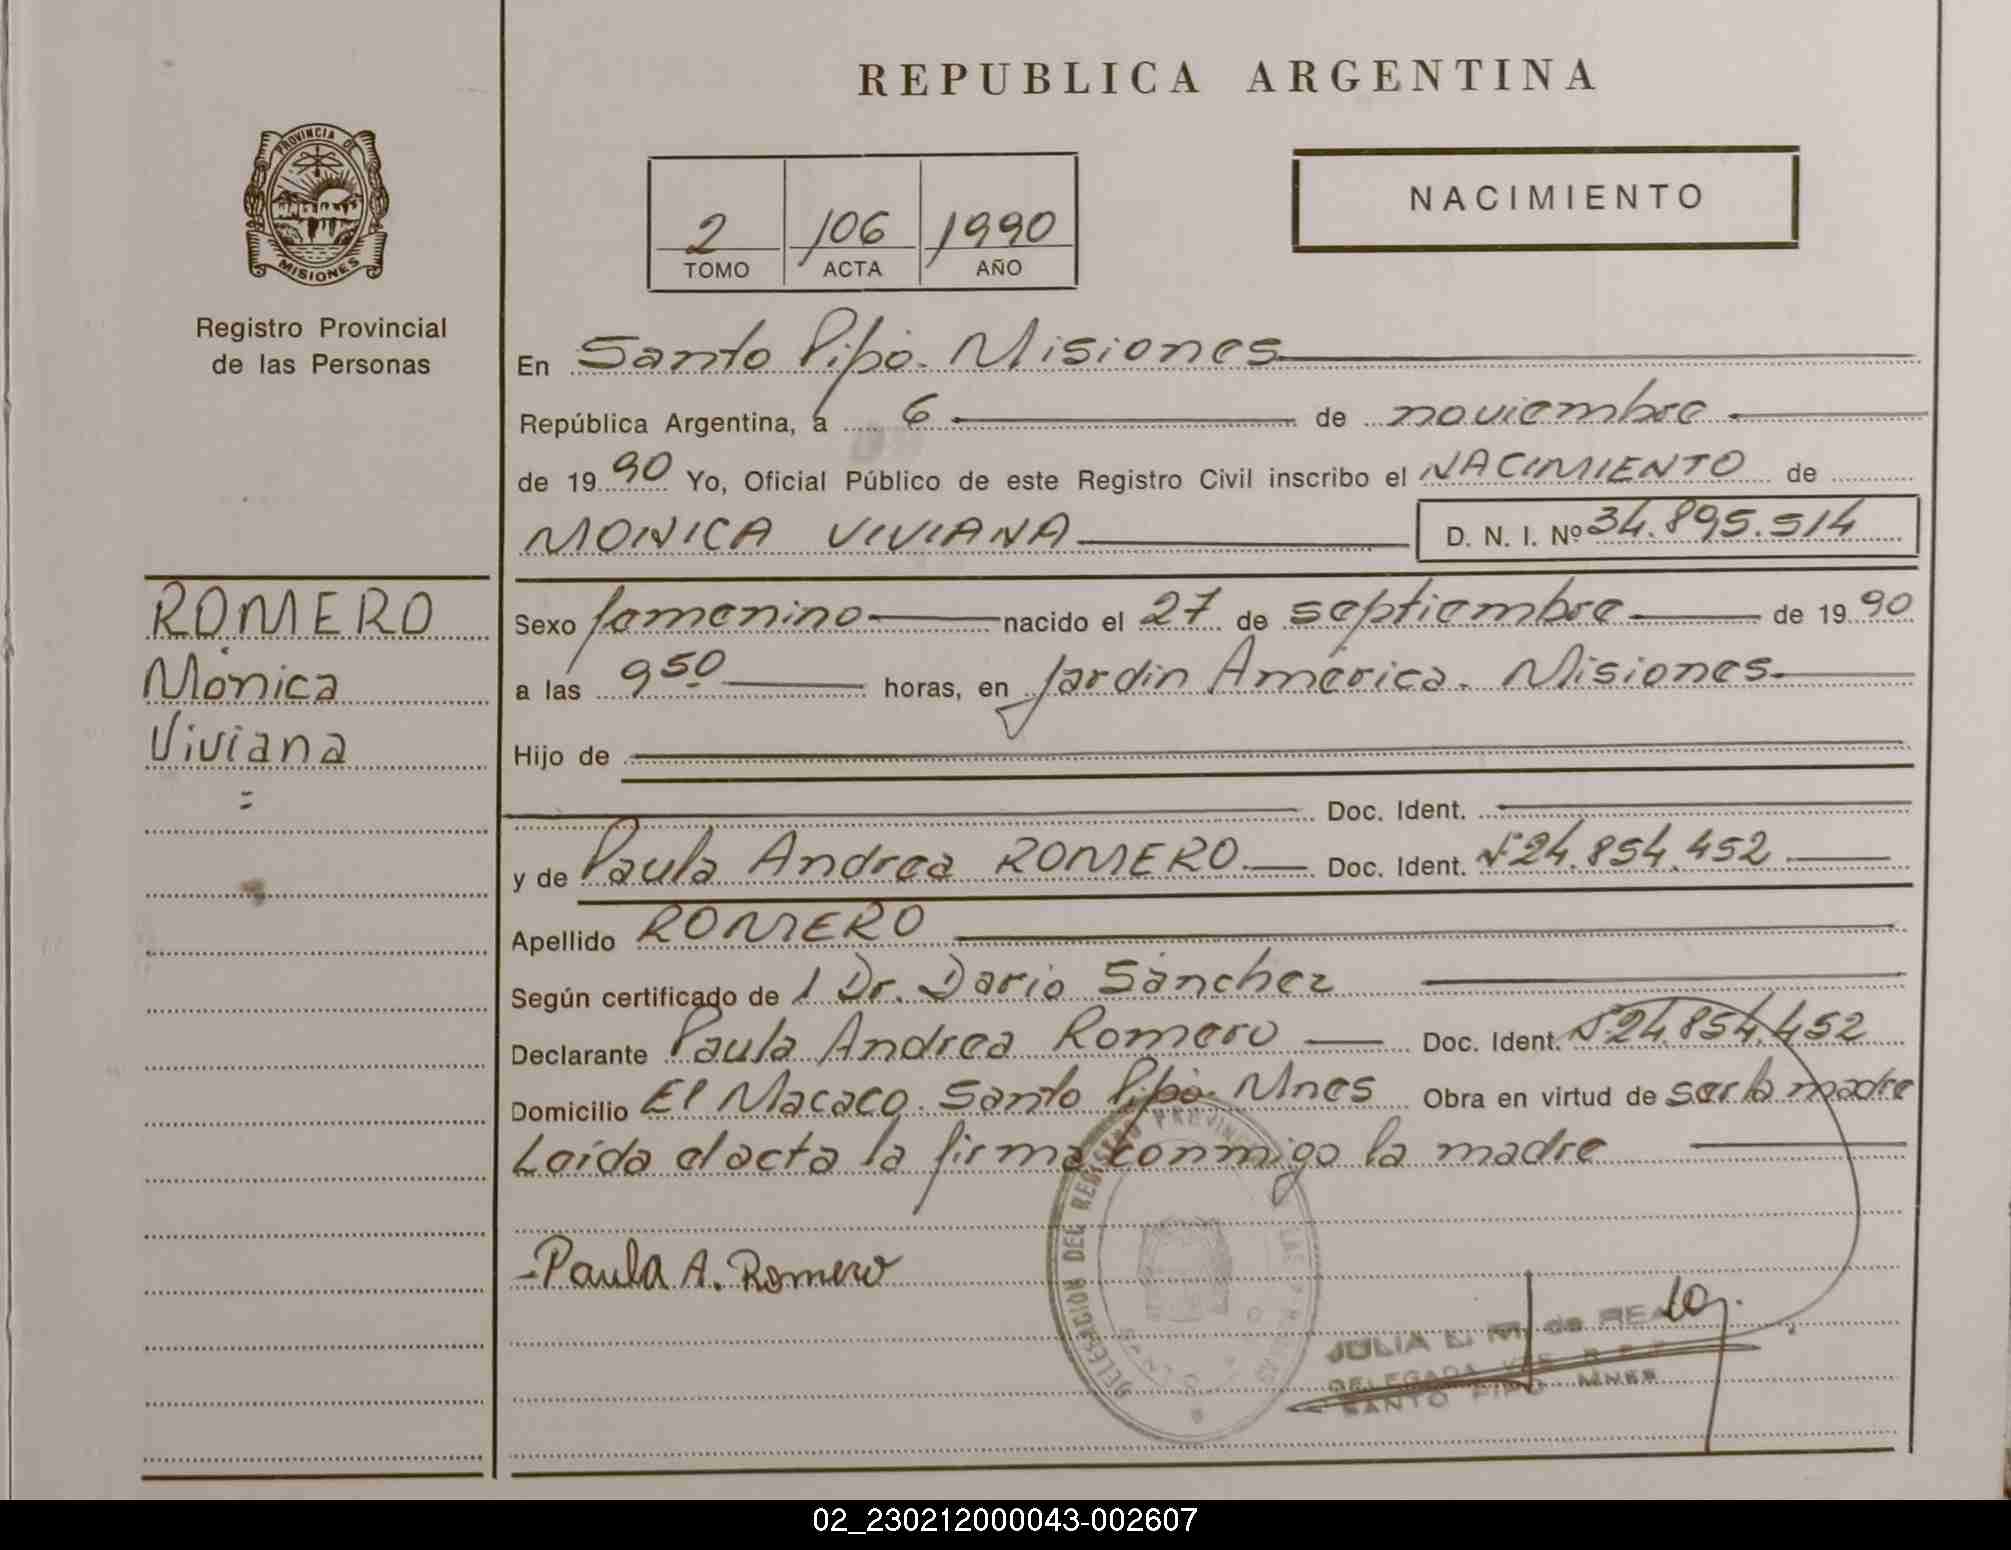 REPUBLICA ARGENTINA
PROVINCIA DE
MISIONES
Registro Provincial
de las Personas
2 106 1990
TOMO ACTA AÑO
NACIMIENTO
En Santo Pipó. Misiones
República Argentina, a 6 de noviembre
de 1990 Yo, Oficial Público de este Registro Civil inscribo el NACIMIENTO de
MONICA VIVIANA D. N. I. Nº 34.895.514
ROMERO
Mónica
Viviana
Sexo femenino nacido el 27 de septiembre de 1990
a las 9 50 horas, en Jardin América. Misiones
Hijo de
Doc. Ident.
y de Paula Andrea ROMERO Doc. Ident. Nº 24.854.452
Apellido ROMERO
Según certificado de 1 Dr. Dario Sánchez
Declarante Paula Andrea Romero Doc. Ident. Nº 24.854.452
Domicilio El Macaco. Santo Pipó. Mnes Obra en virtud de ser la madre
Leída el acta la firma conmigo la madre
DELEGACION DEL REGISTRO PROVINCIAL DE LAS PERSONAS
SANTO
Paula A. Romero
JULIA E. M. de REA
DELEGADA
SANTO PIPO MNES
02_230212000043-002607